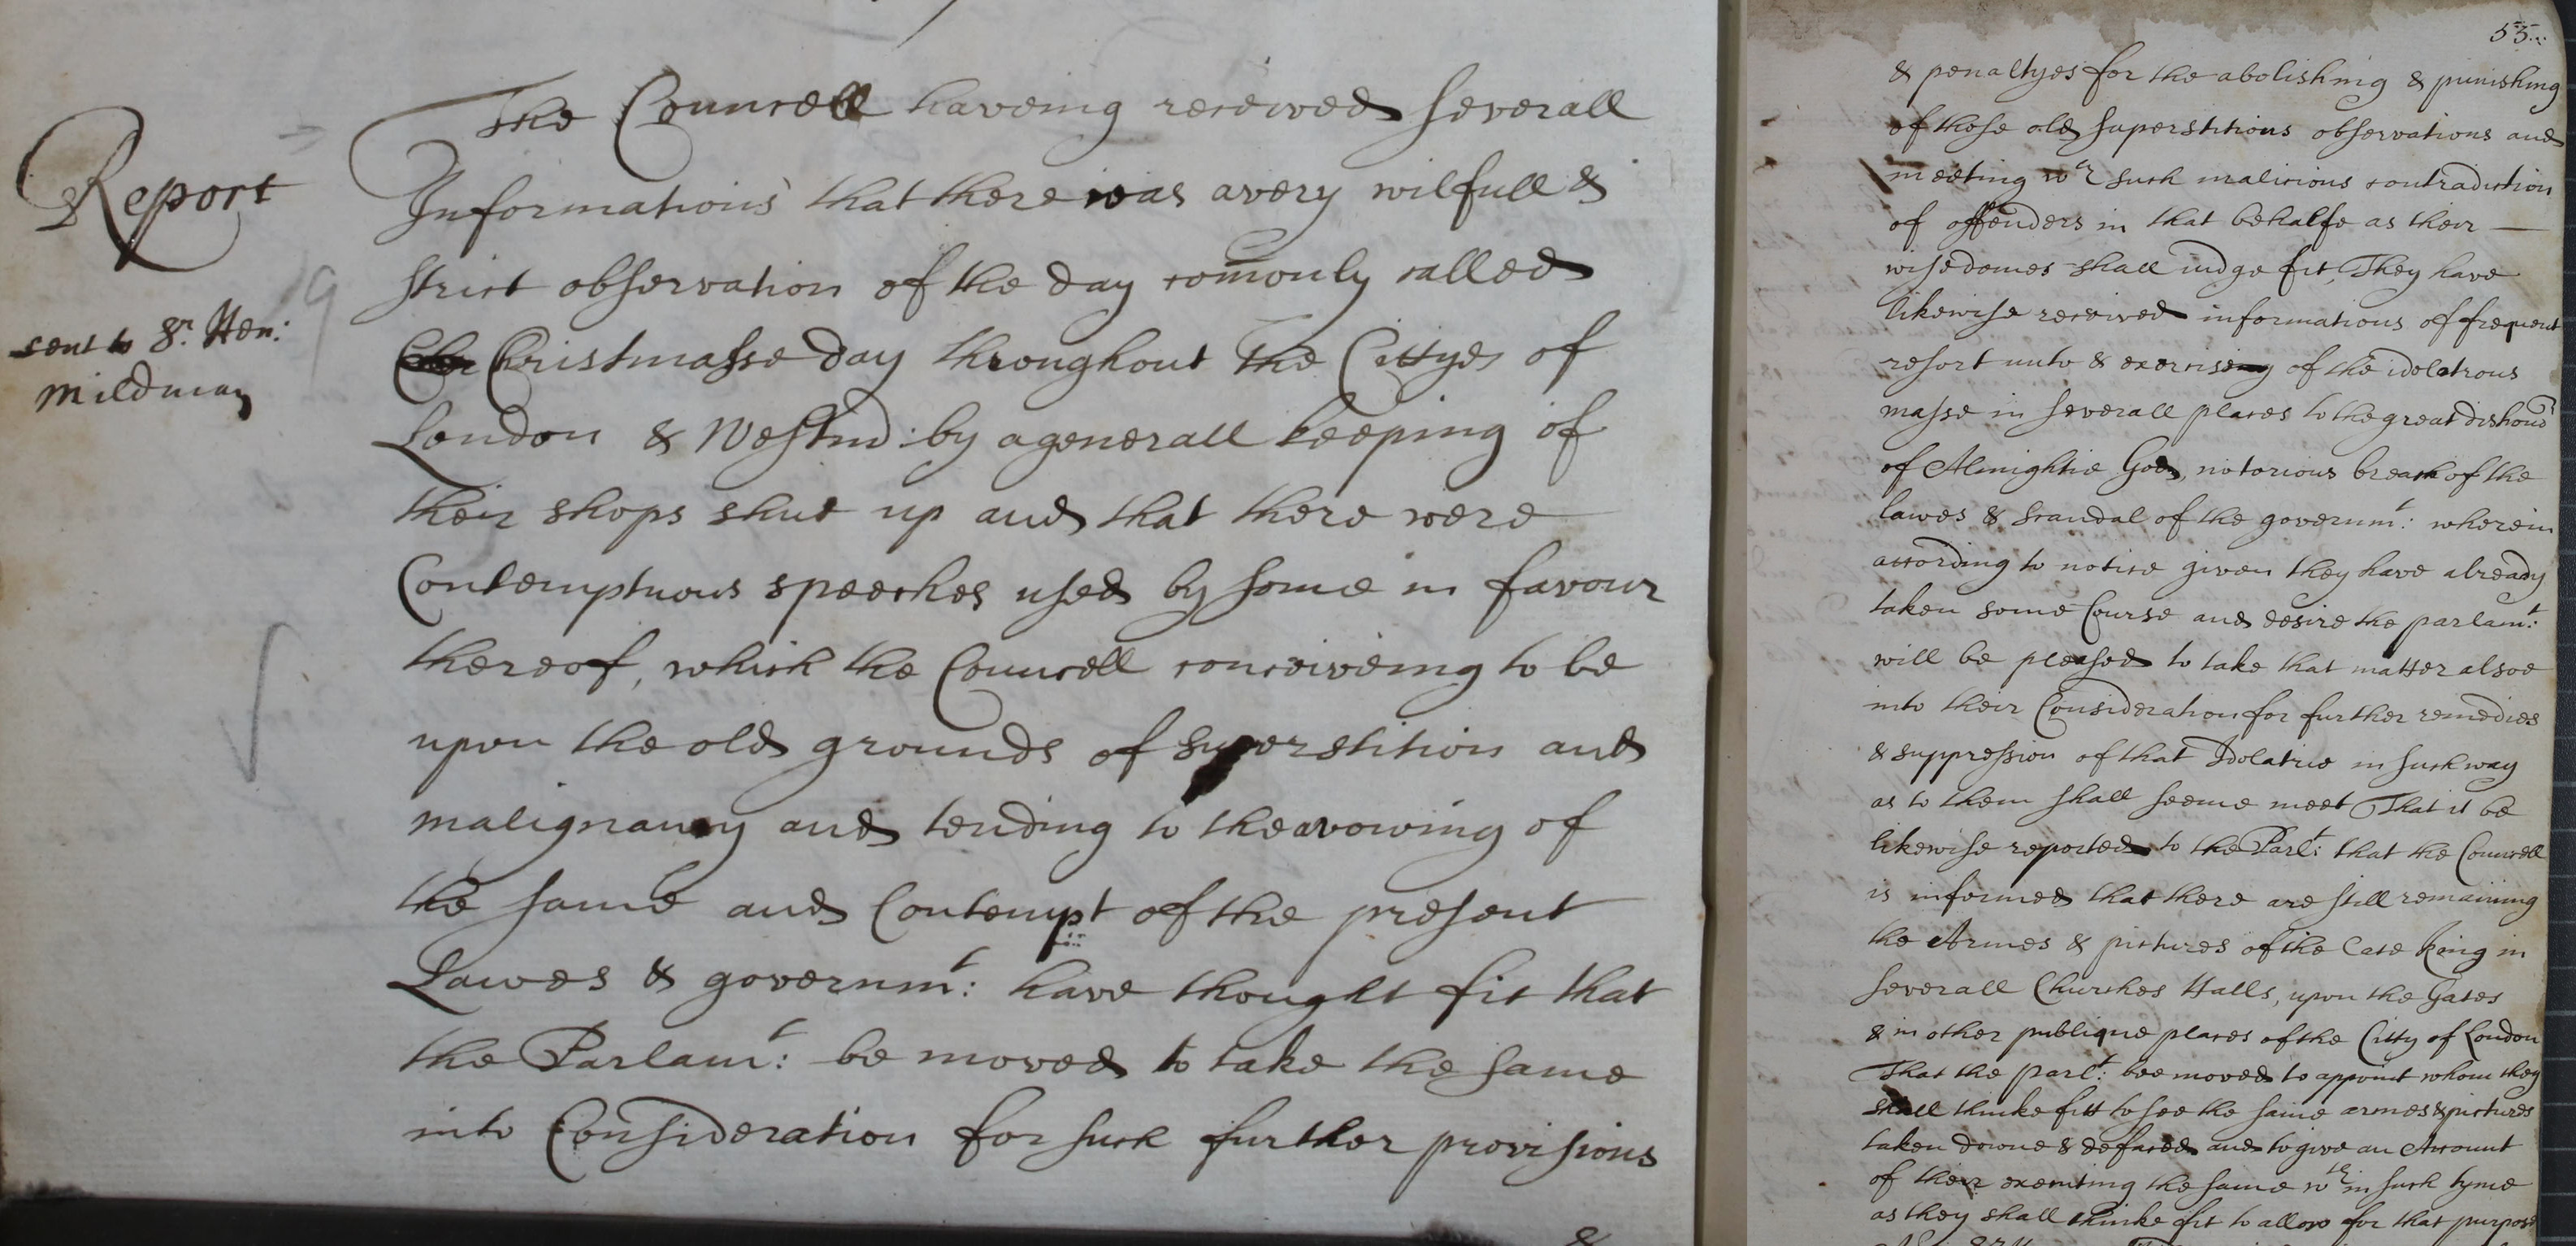 Report
sent to Sr. Hen:
Mildmay
The Councell haveing received severall
Informations that there was a very wilfull &
strict observation of the day comonly called
Christmasse day throughout the Cittyes of
London & Westmr: by a generall keeping of
their shops shut up and that there were
Contemptuous speeches used by some in favour
thereof, which the Councell conceiveing to be
upon the old grounds of superstition and
malignancy and tending to the avowing of
the same and Contempt of the present
Lawes & governmt: have thought fit that
the Parlamt: be moved to take the same
into Consideration for such further provisions
&
53
& penaltyes for the abolishing & punishing
of those old superstitious observations and
meeting wth such malicious contradiction
of offenders in that behalfe as their
wisedomes shall iudge fit, They have
likewise received informations of frequent
resort unto & exercising of the idolatrous
masse in severall places to the great dishonor
of Almightie God, notorious breach of the
lawes & scandal of the governmt: wherein
according to notice given they have already
taken some Course and desire the parlamt:
will be pleased to take that matter alsoe
into their Consideration for further remedies
& suppression of that Idolatrie in such way
as to them shall seeme meet That it be
likewise reported to the Parlt: that the Councell
is informed that there are still remaining
the Armes & pictures of the late King in
severall Churches Halls, upon the Gates
& in other publique places of the Citty of London
That the parlt: bee moved to appoint whom they
shall thinke fitt to see the same armes & pictures
taken downe & defaced and to give an Account
of their executing the same wth in such tyme
as they shall thinke fit to allow for that purpose